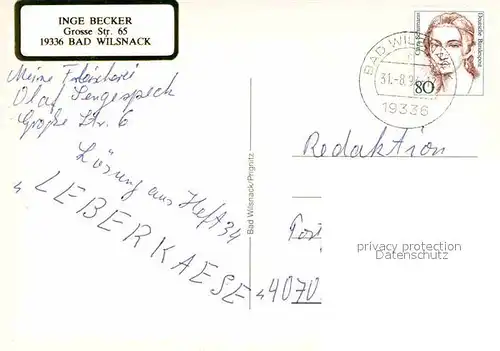 INGE BECKER
Grosse Str. 65
19336 BAD WILSNACK
Meine Fleischerei
Olaf Sengespeck
Große Str. 6
Lösung aus Heft 34
"LEBERKAESE"
Bad Wilsnack/Prignitz
BAD WIL
31.-8.9
19336
Clara Schumann
Deutsche Bundespost
80
Redaktion
Post
4070
privacy protection
Datenschutz